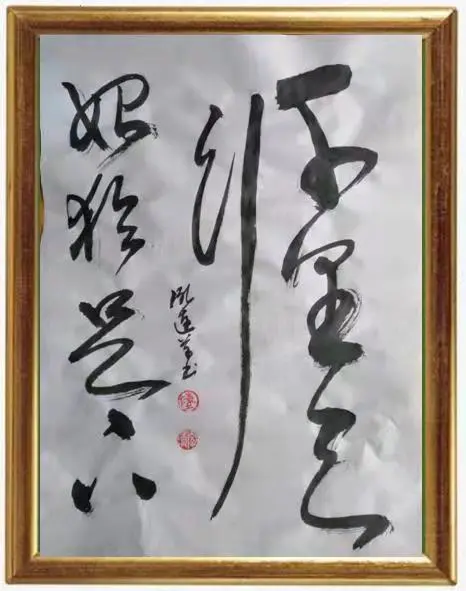 千里之
行
始於足下